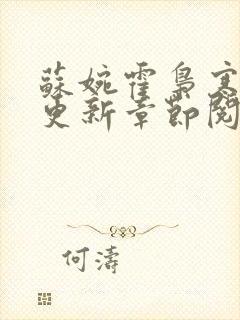 蘇婉霍梟寒
更新章節閱
何濤